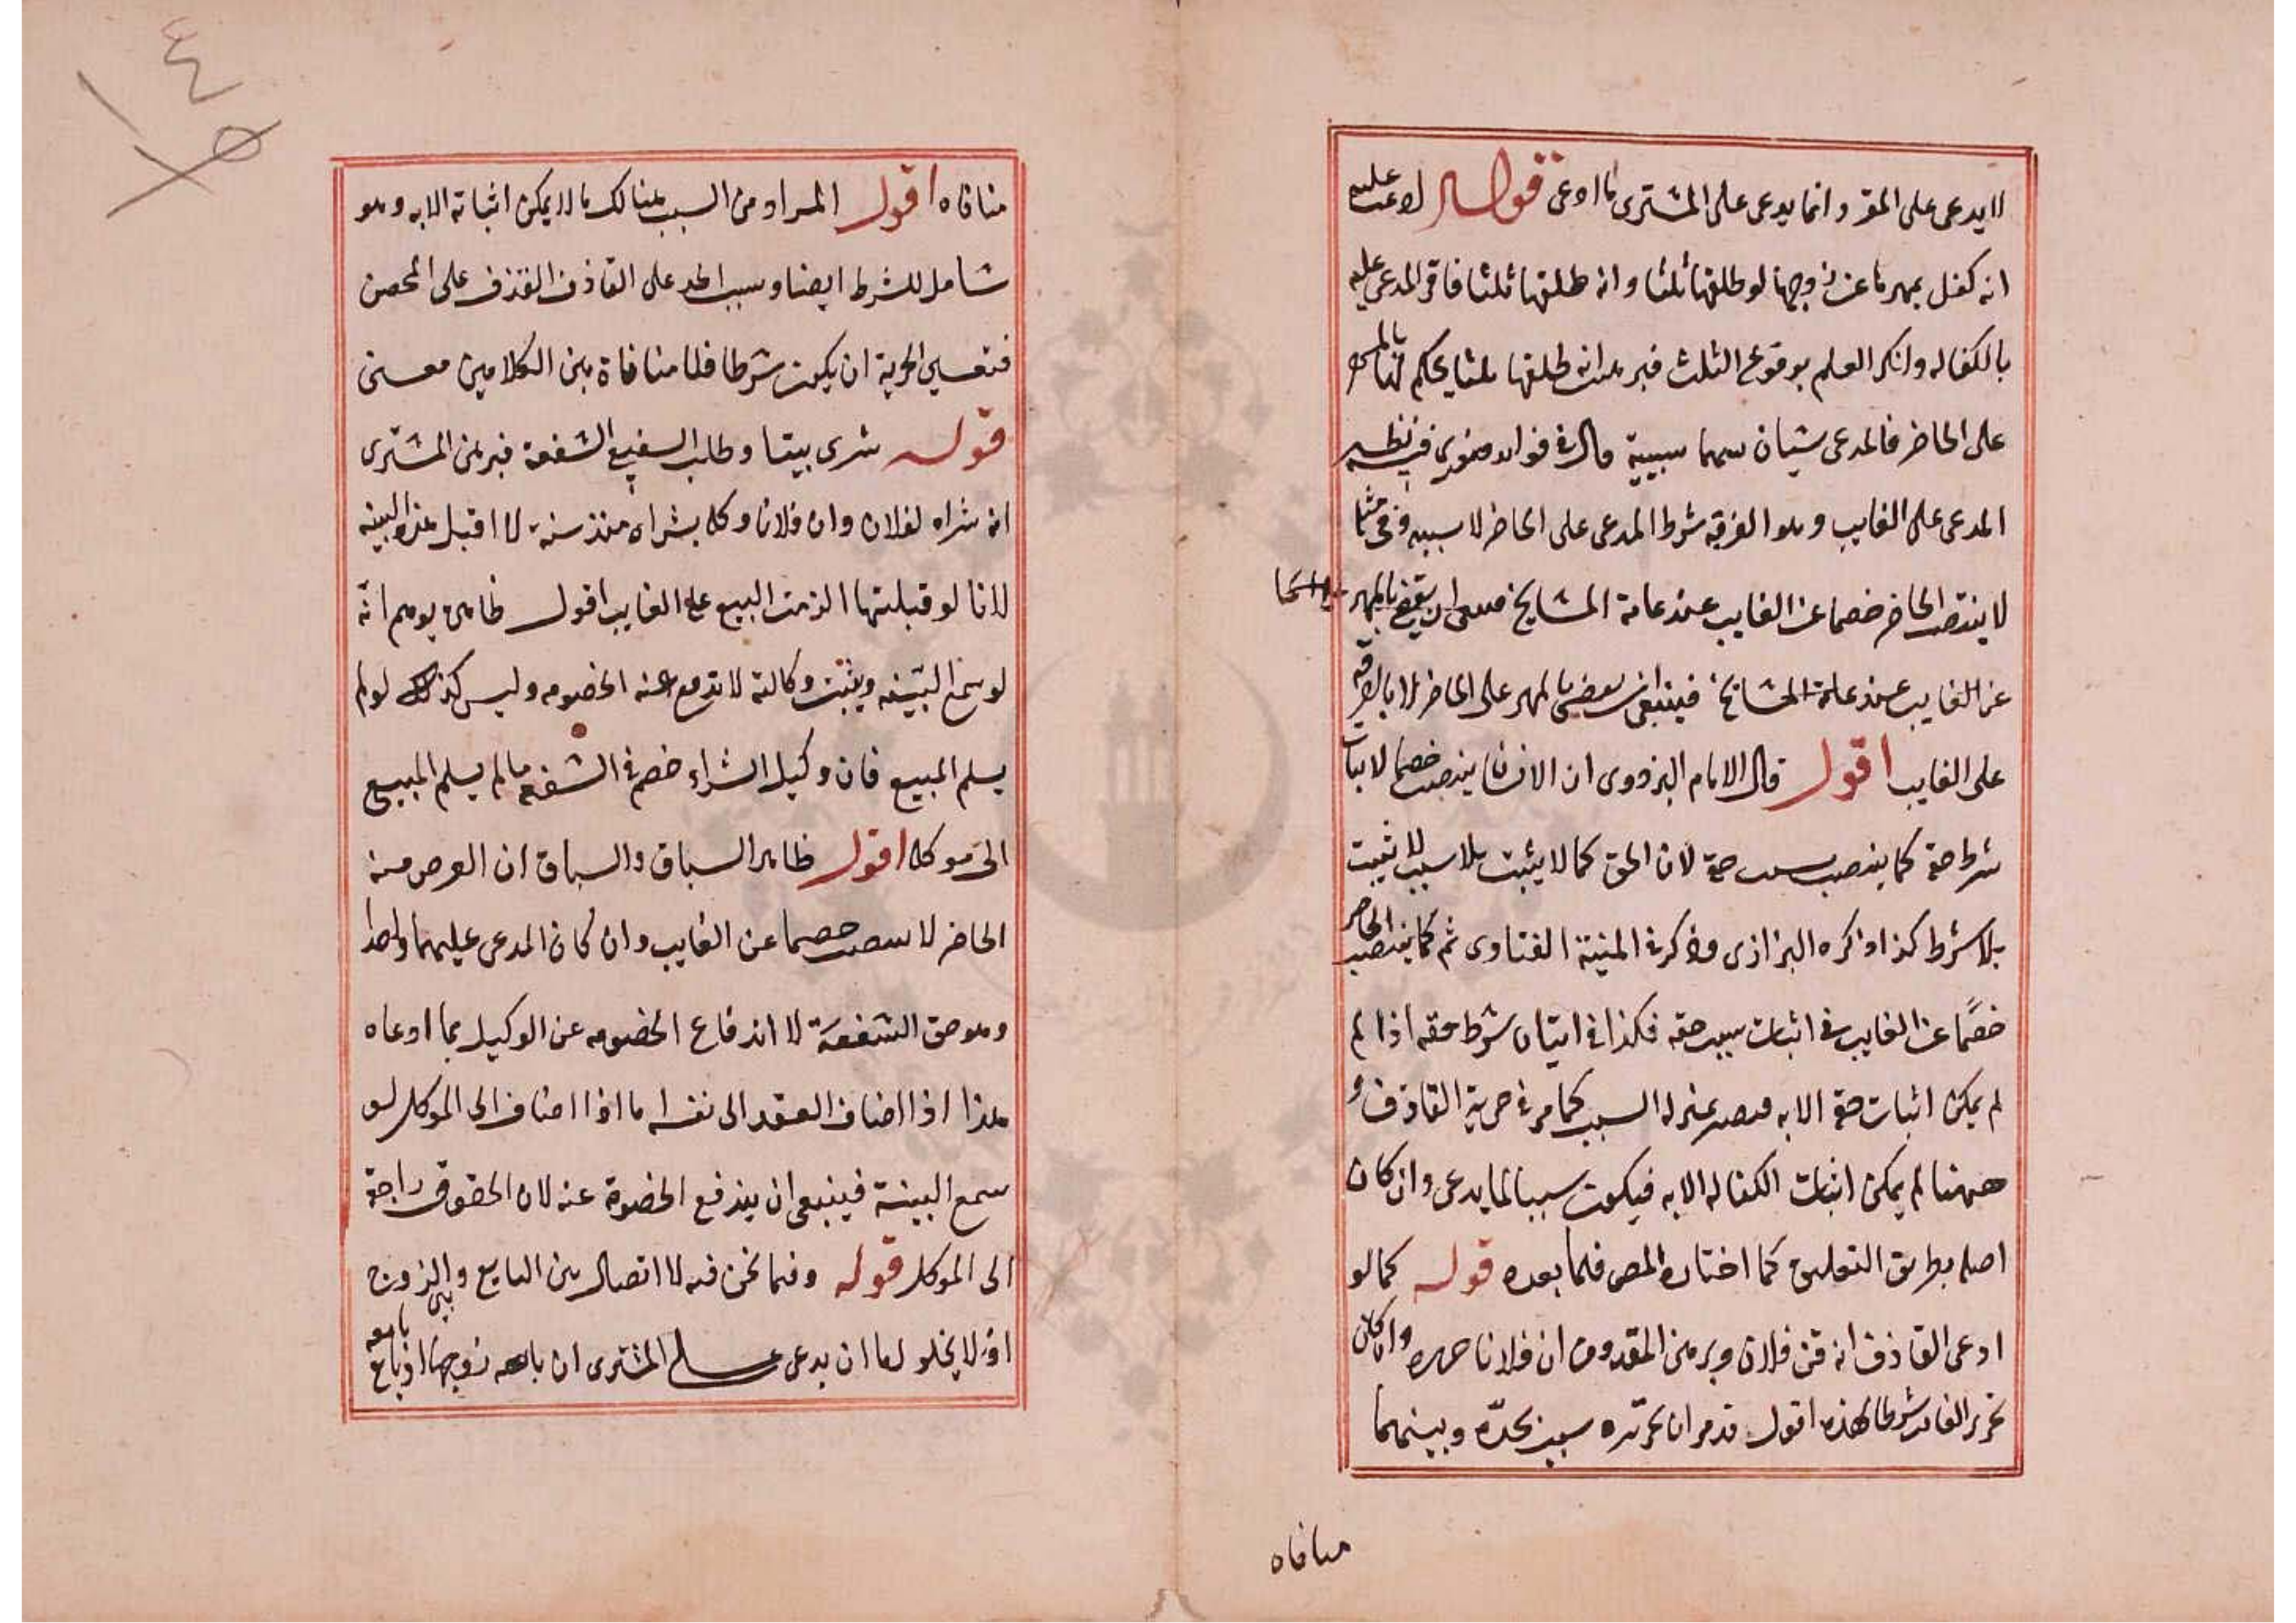 لا يدعى على المقر وانما يدعى على المشترى ما ادعى قوله ادعت عليه
انه كفل بمهرها عن زوجها لو طلقها ثلثا وانه طلقها ثلثا فاقر المدعى عليه
بالكفاله وانكر العلم بوقوع الثلث فبرهنت انه طلقها ثلثا يحكم لها بالمهر
على الحاضر فالمدعى شيئان بينهما سببية قال فى فوائد فيه نظر
المدعى على الغايب وهو الفرقه شرط المدعى على الحاضر لا سببه وفى مثلها
لا ينتصب الحاضر خصما عن الغايب عند عامة المشايخ فينبغى ان يقضى بالمهر
عن الغايب عند عامة المشايخ فينبغى ان يقضى بالمهر على الحاضر لا بالفرقه
على الغايب اقول قال الامام البزدوى ان الانسان ينتصب خصما لاثبات
شرط حقه كما ينتصب بسبب حقه لان الحق كما لا يثبت بلا سبب لا يثبت
بلا شرط كذا ذكره البزازى وذكر فى المنية الفتاوى ثم كما ينتصب الحاضر
خصما عن الغايب فى اثبات سبب حقه فكذا فى اثبات شرط حقه اذا لم
لم يمكن اثبات حقه الا به فيصير بمنزله السبب كما مر فى حرية القاذف و
ههنا لم يمكن اثبات الكفاله الا به فيكون سببا لما يدعى وان كان
اصله بطريق التعليق كما اختاره المص فلما بعده قوله كما لو
ادعى القاذف انه قن فلان وبرهن المقذوف ان فلانا حرره وان كان
تحرير الغائب شرطا لهذه اقول قد مر ان تحريره سبب لحده وبينهما
منافاه
منافاه اقول المراد من السبب هنالك ما لا يمكن اثباته الا به وهو
شامل للشرط ايضا وسبب الحد على القاذف القذف على المحصن
فتعين الحرية ان يكون شرطا فلا منافاة بين الكلامين معنى
قوله شرى بيتا وطلب الشفيع الشفعة فبرهن المشترى
انه شراه لفلان وان فلانا وكله بشراه منذ سنة لا اقبل هذه البينه
لانا لو قبلتها الزمت البيع على الغايب اقول ظاهره يوهم انه
لو سمع البينه ويثبت وكالته لاندفع عنه الخصومه وليس كذلك لو لم
يسلم المبيع فان وكيل الشراء خصم فى الشفعه ما لم يسلم المبيع
الى موكله اقول ظاهر السباق والسياق ان الغرض منه
الحاضر لا ينتصب خصما عن الغايب وان كان المدعى عليهما واحدا
وهو حق الشفعة لا اندفاع الخصومه عن الوكيل بما ادعاه
هذا اذا اضاف العقد الى نفسه اما اذا اضاف الى الموكل لو
سمع البينة فينبغى ان يندفع الخصومة عنه لان الحقوق راجعة
الى الموكل قوله وفيما نحن فيه لا اتصال بين البايع وبين الزوج
اذ لا يخلو اما ان يدعى على المشترى ان بايعه زوجها او باع